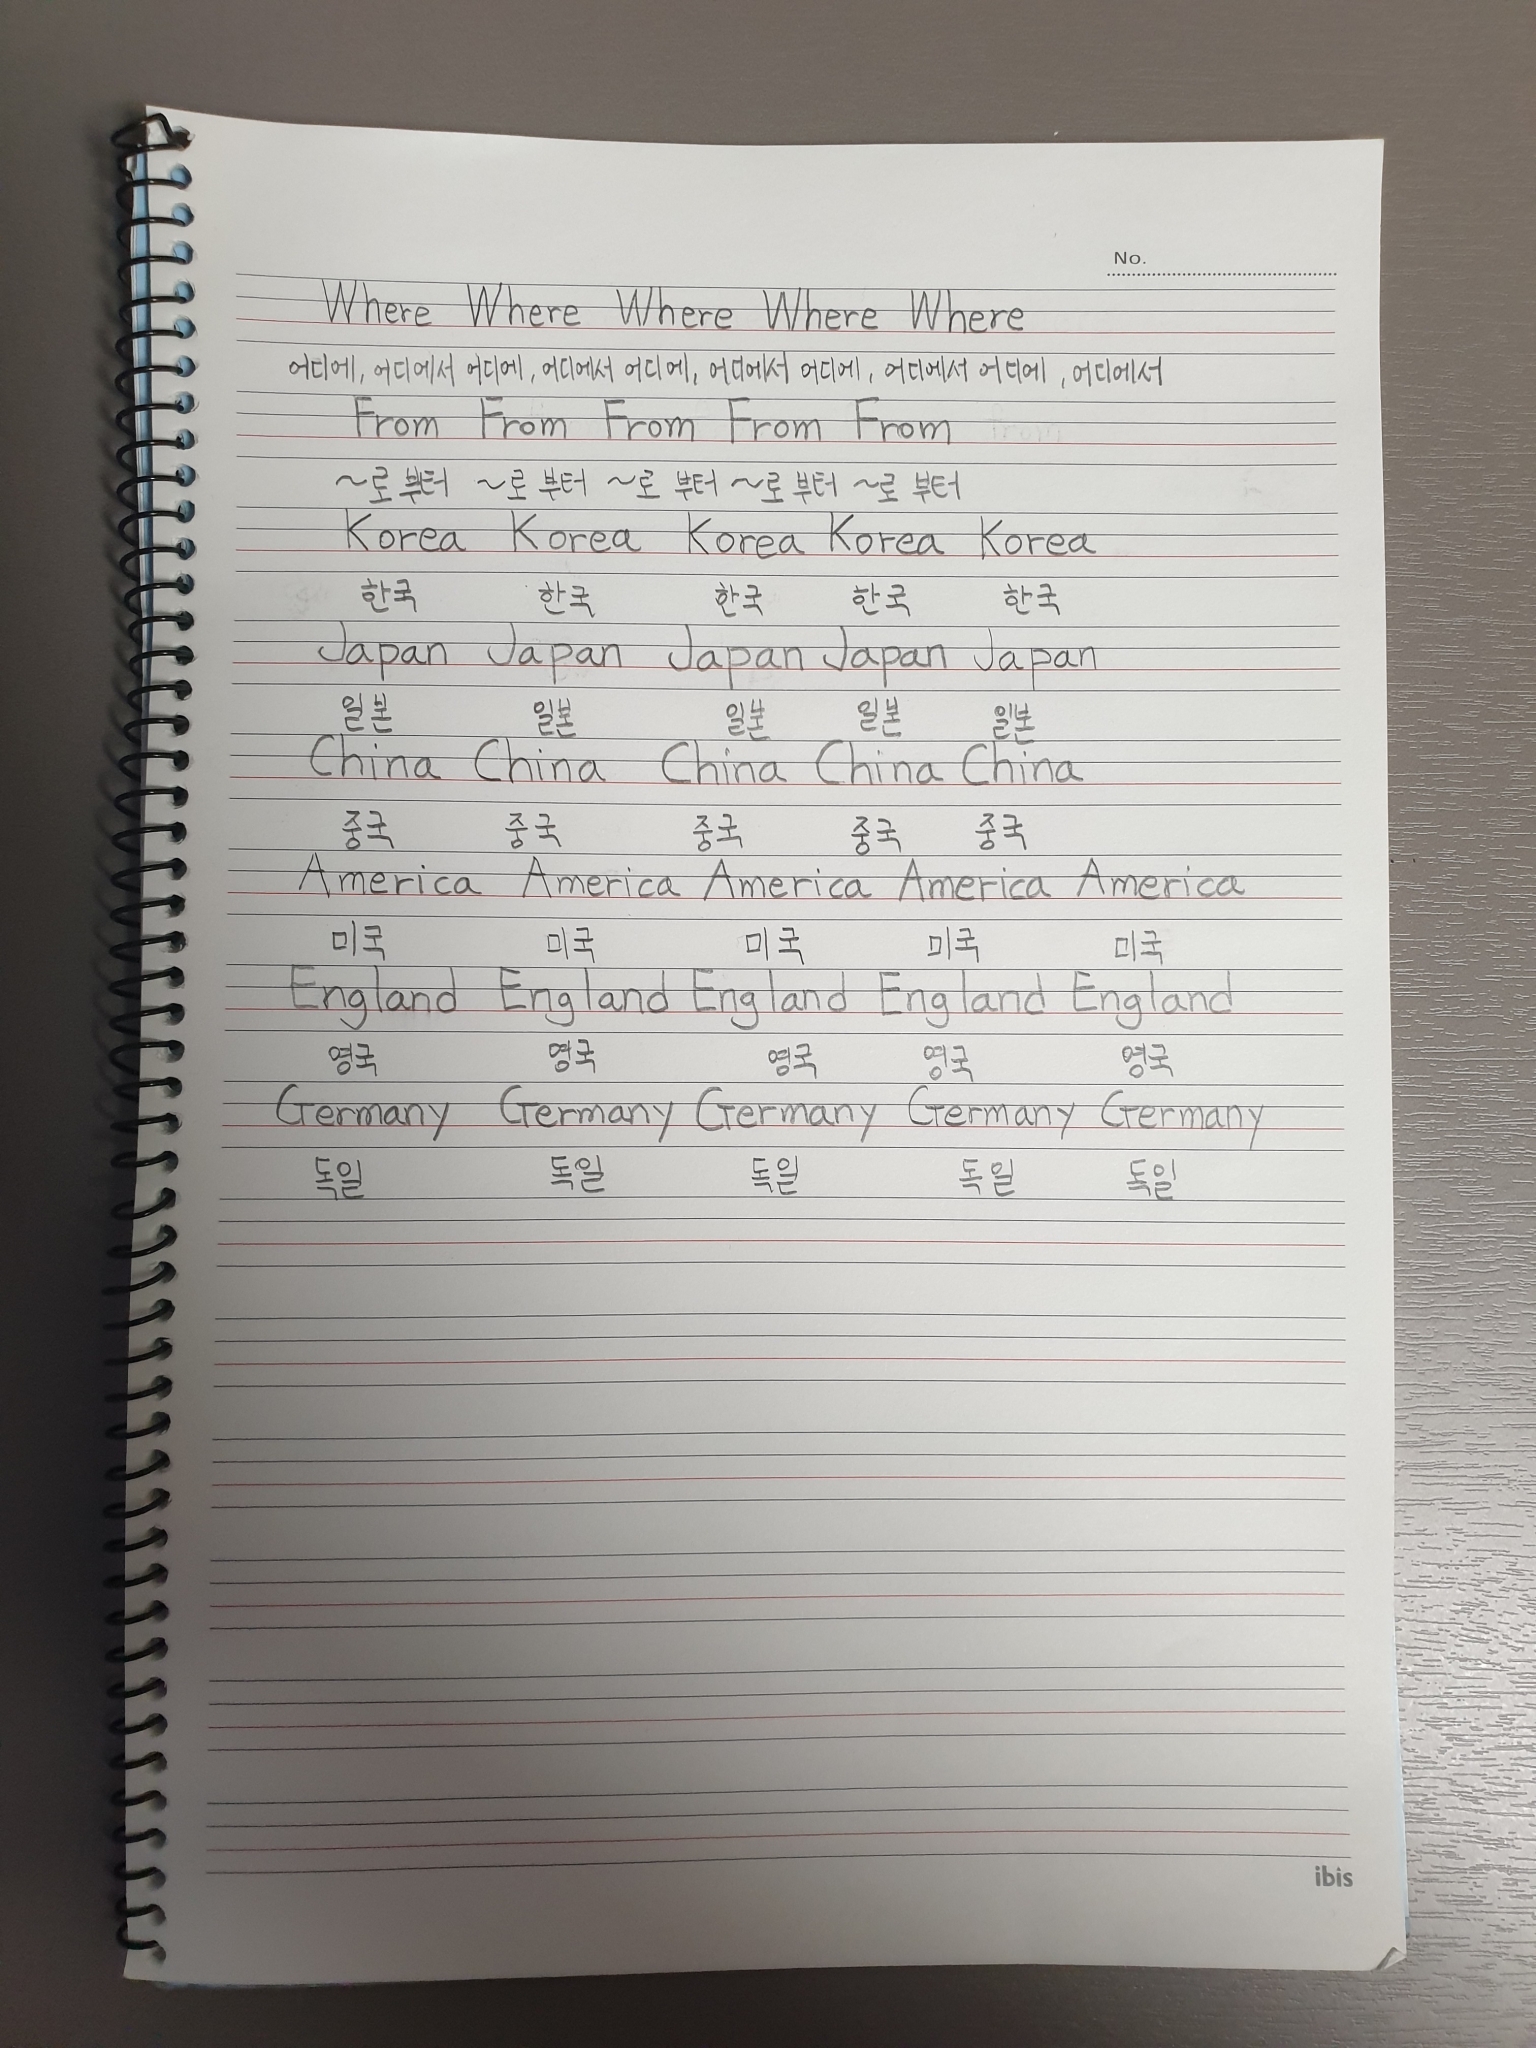 No.
Where Where Where Where Where
어디에, 어디에서 어디에, 어디에서 어디에, 어디에서 어디에, 어디에서 어디에, 어디에서
From From From From From
~로 부터 ~로 부터 ~로 부터 ~로 부터 ~로 부터
Korea Korea Korea Korea Korea
한국 한국 한국 한국 한국
Japan Japan Japan Japan Japan
일본 일본 일본 일본 일본
China China China China China
중국 중국 중국 중국 중국
America America America America America
미국 미국 미국 미국 미국
England England England England England
영국 영국 영국 영국 영국
Germany Germany Germany Germany Germany
독일 독일 독일 독일 독일
ibis